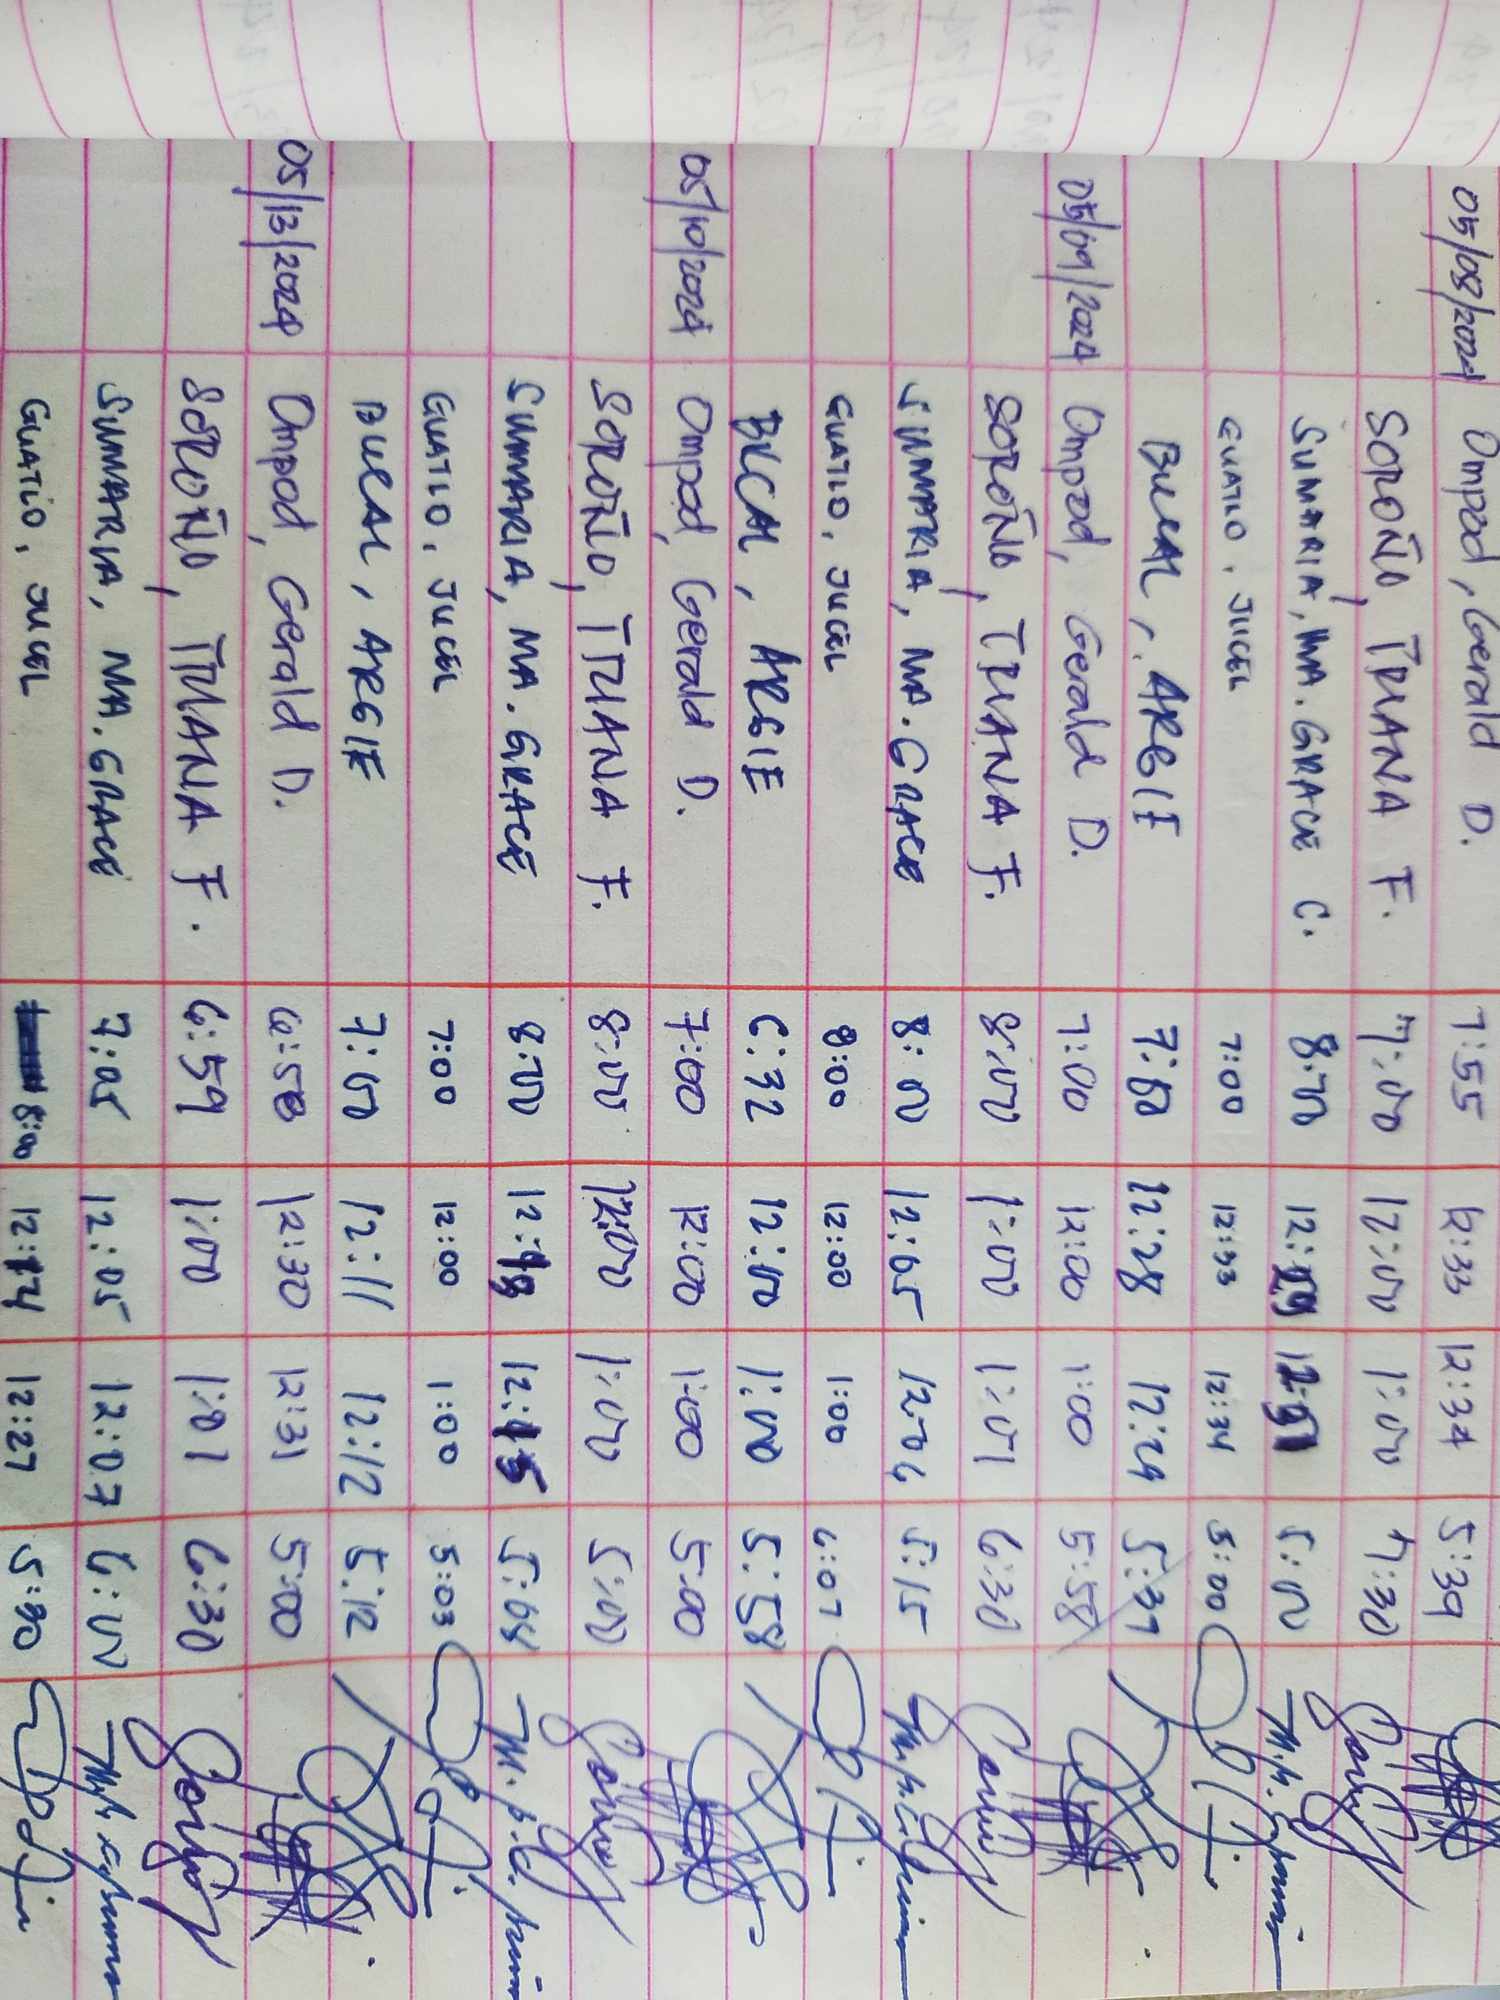 05/08/2024 Ompad, Gerald D. 7:55 12:33 12:34 5:39
SOROÑO, TRIANA F. 7:00 12:00 1:00 7:30
SUMARIA, MA. GRACE C. 8:00 5:00
GUATLO, JUCEL 7:00 12:33 12:34 5:00
BUCAL, ARGIE 7:00 12:28 12:29 5:37
05/09/2024 Ompad, Gerald D. 7:00 12:00 1:00 5:58
SOROÑO, TRIANA F. 8:00 1:00 1:01 6:30
SUMARIA, MA. GRACE 8:00 12:05 12:06 5:15
GUATLO, JUCEL 8:00 12:00 1:00 6:07
BUCAL, ARGIE 6:32 12:00 1:00 5:58
05/10/2024 Ompad, Gerald D. 7:00 12:00 1:00 5:00
SOROÑO, TRIANA F. 8:00 12:00 1:00 5:00
SUMARIA, MA. GRACE 8:00
GUATLO, JUCEL 7:00 12:00 1:00 5:03
BUCAL, ARGIE 7:00 12:11 12:12 5:12
05/13/2024 Ompad, Gerald D. 6:58 12:30 12:31 5:00
SOROÑO, TRIANA F. 6:59 1:00 1:01 6:30
SUMARIA, MA. GRACE 7:05 12:05 12:07 6:00
GUATLO, JUCEL 8:00 12:27 5:30